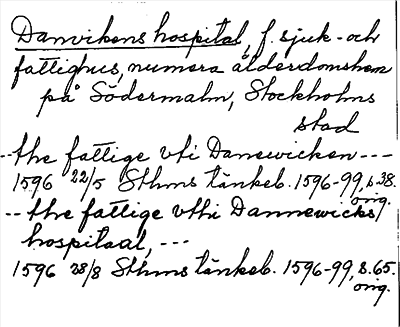 Danvikens hospital, f. sjuk- och
fattighus, numera ålderdomshem
på Södermalm, Stockholms
stad
-- the fattige vti Danewicken ---
1596 22/5 Sthms tänkeb. 1596-99, s. 38.
orig.
-- the fattige vthi Dannewicks
hospitaal, ---
1596 28/8 Sthms tänkeb. 1596-99, s. 65.
orig.